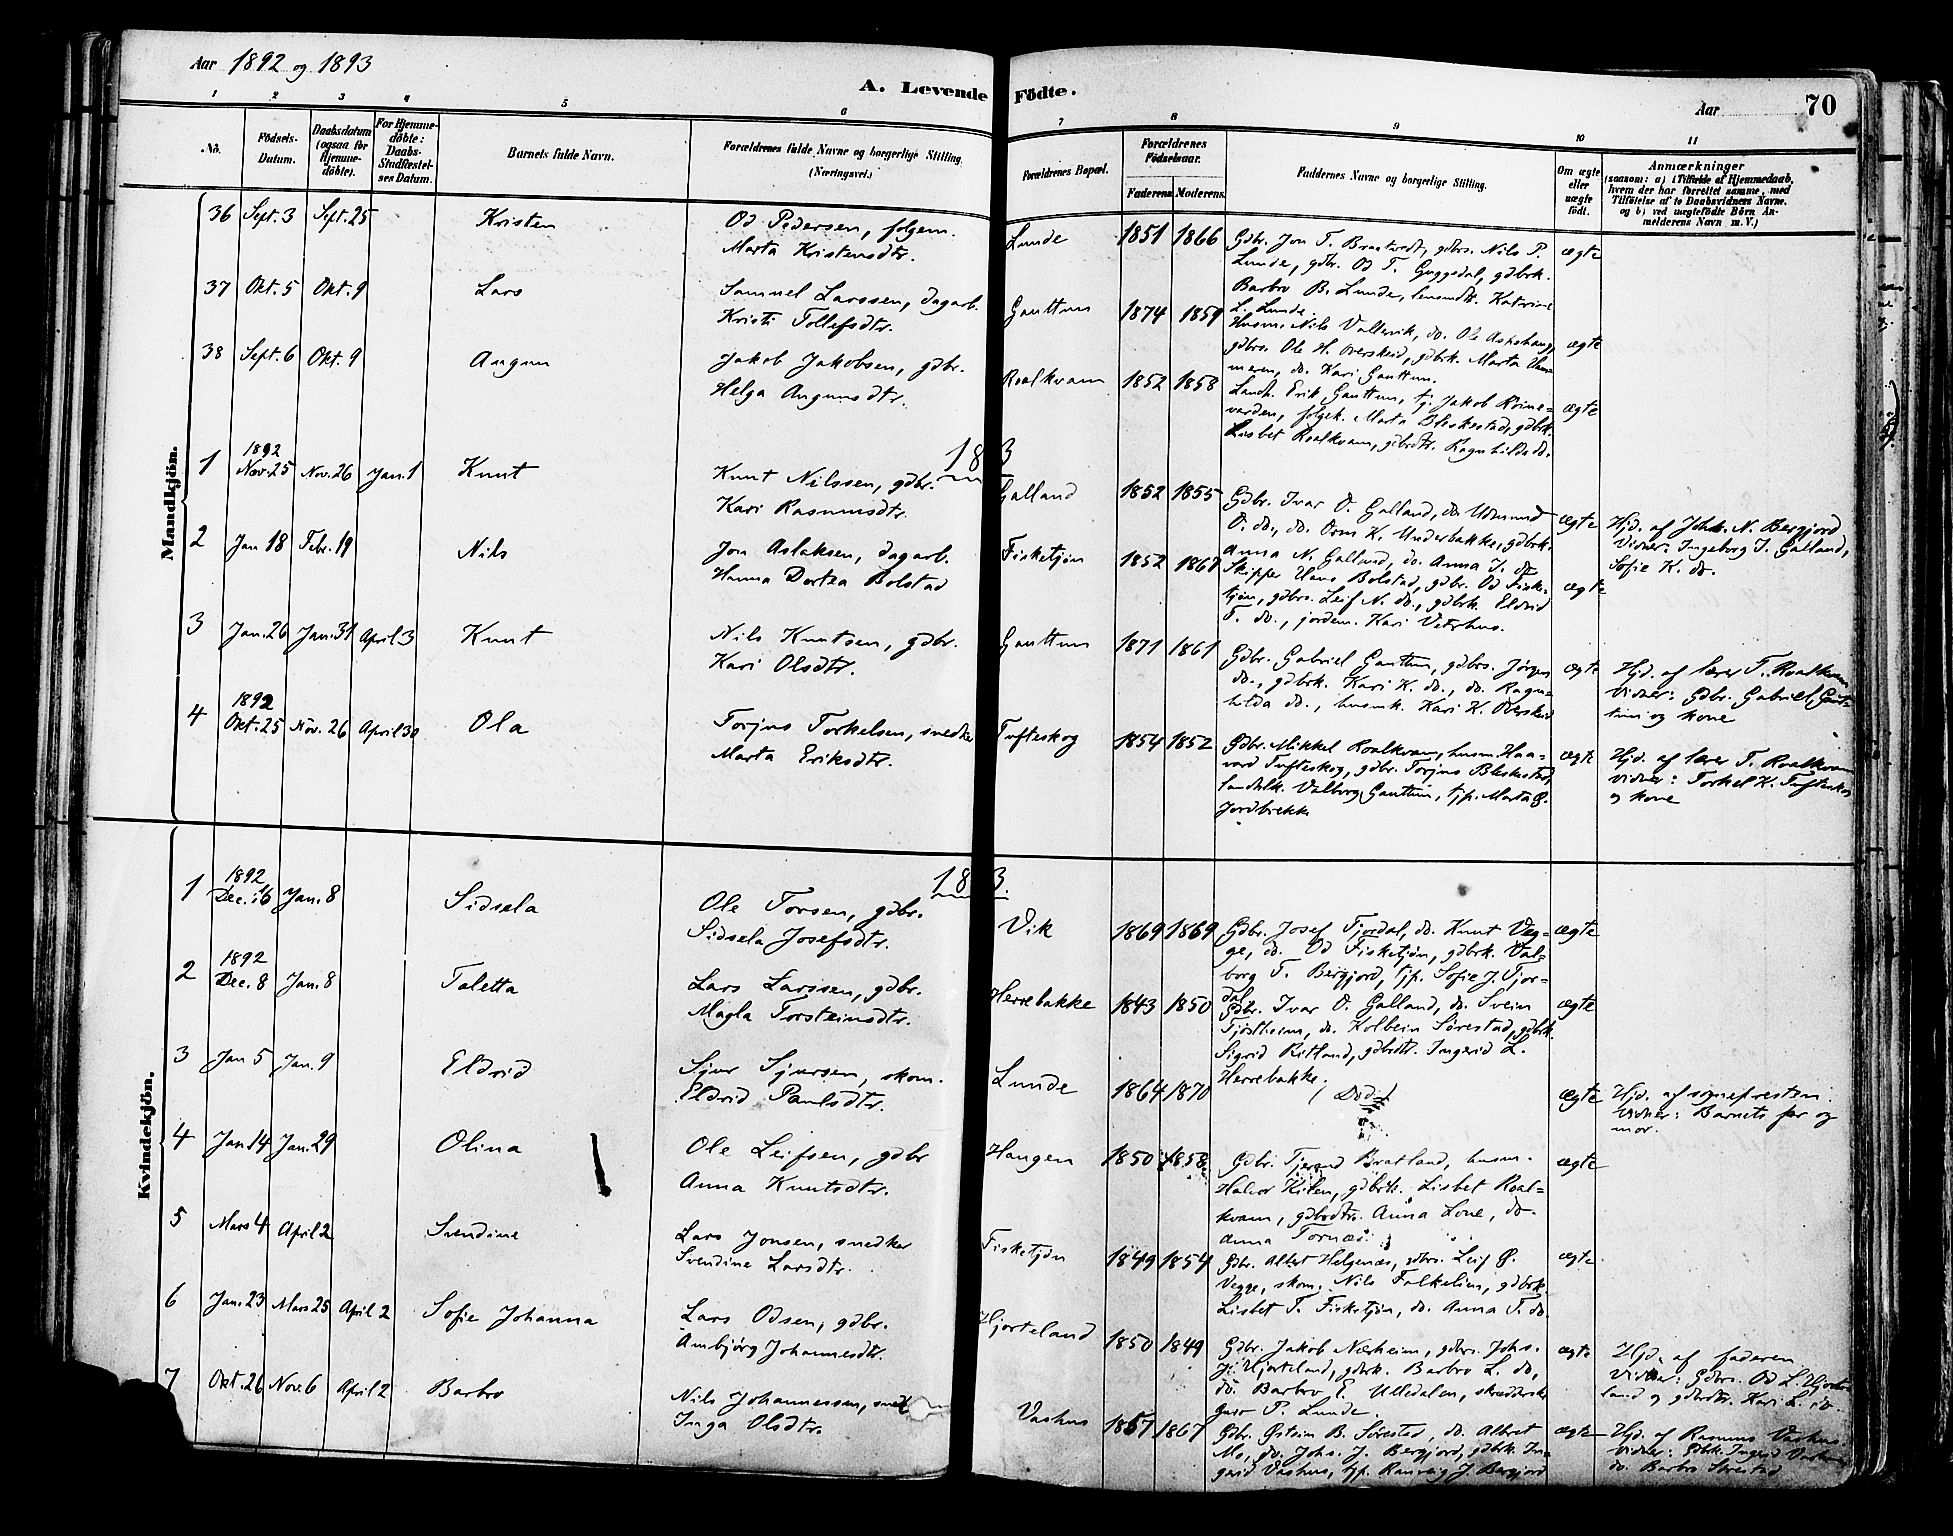 Aar 1892 og 1893
A. Levende Födte.
Aar 70
1 2 3 4 5 6 7 8 9 10 11
No. Födsels-Datum. Daabsdatum (ogsaa for Hjemme-döbte). For Hjemme-döbte: Daabs-Stadfæstel-ses Datum. Barnets fulde Navn. Forældrenes fulde Navne og borgerlige Stilling. (Næringsvei.) Forældrenes Bopæl. Forældrenes Födselsaar. Faderens. Moderens. Faddernes Navne og borgerlige Stilling. Om ægte eller uægte födt. Anmærkninger (saasom: a) i Tilfælde af Hjemmedaab, hvem der har forrettet samme, med Tilföielse af to Daabsvidners Navne, og b) ved uægtefödte Börn An-melderens Navn m. V.)
Mandkjön.
36 Sept. 3 Sept. 25 Kristen Od Pedersen, folgem. Lunde 1851 1866 Gdbr. Jon T. Bratvedt, gdbrs. Nils P. ægte
Marta Kristensdtr. Lunde, gdbr. Od T. Guggedal, gdbrk.
Barbro B. Lunde, lensmdtr. Katrine
L. Lunde.
37 Okt. 5 Okt. 9 Lars Samuel Larssen, dagarb. Gauttun 1874 1859 Husm. Nils Vallevik, do. Ole Aspehaug, ægte
Kristi Tollefsdtr. gdbrs. Ole H. Overskeid, gdbrk. Marta
meren, do. Kari Gauttun.
38 Sept. 6 Okt. 9 Augun Jakob Jakobsen, gdbr. Roalkvam 1852 1858 Landh. Erik Gauttun, tj. Jakob Kvine- ægte
Helga Augunsdtr. varden, folgek. Marta Bleskestad, gdbrk.
Lisbet Roalkvam, gdbrdtr. Ragnhilda do.
1893
1 1892 Nov. 25 Nov. 26 Jan. 1 Knut Knut Nilssen, gdbr. Galland 1852 1855 Gdbr. Ivar O. Galland, do. Udmund ægte Hjd. af Johk. N. Bergjord
Kari Rasmusdtr. O. do., do. Orm K. Underbakke, gdbrk. Vidner: Ingeborg I. Galland,
Anna N. Galland, do. Anna I. do. Sofie K. do.
2 Jan 18 Febr. 19 Nils Jon Aslaksen, dagarb. Fisketjøn 1852 1867 Skipper Hans Bolstad, gdbr. Od Fiske- ægte
Hanna Dortea Bolstad tjøn, gdbrs. Leif N. do., gdbrk. Eldrid
T. do., jordem. Kari Veterhus.
3 Jan. 26 Jan. 31 April 3 Knut Nils Knutsen, gdbr. Gauttun 1871 1861 Gdbr. Gabriel Gauttun, gdbrs. Jørgen ægte Hjd. af lærer T. Roalkvam
Kari Olsdtr. do., gdbrk. Kari K. do., do. Ragn- Vidner: Gdbr. Gabriel Gaut-
hilda do., husmk. Kari K. Overskeid tun og kone
4 1892 Okt. 25 Nov. 26 April 30 Ola Torjus Torkelsen, snedker Tufteskog 1854 1852 Gdbr. Mikkel Roalkvam, husm. Haa- ægte Hjd. af lærer T. Roalkvam
Marta Eriksdtr. vard Tufteskog, gdbr. Torjus Bleskestad, Vidner: Torkel K. Tufteskog
landhk. Valborg Gauttun, tjp. Marta O. og kone
Jordbrekk
Kvindekjön.
1893.
1 1892 Dec. 16 Jan. 8 Sidsela Ole Torsen, gdbr. Vik 1869 1869 Gdbr. Josef Fjordal, do. Knut Veg- ægte
Sidsela Josefsdtr. ge, do. Od Fisketjøn, gdbrk. Val-
borg T. Bergjord, tjp. Sofie J. Fjor-
dal.
2 1892 Dec. 8 Jan. 8 Taletta Lars Larssen, gdbr. Herrebakke 1843 1850 Gdbr. Ivar O. Galland, do. Svein ægte
Magla Torsteinsdtr. Tjøstheim, do. Kolbein Sørestad, gdbrk.
Sigrid Ritland, gdbrdtr. Ingerid L.
Herrebakke.
3 Jan 5 Jan. 9 Eldrid Sjur Sjursen, skom. Lunde 1864 1870 (Død) ægte Hjd. af sognepresten.
Eldrid Paulsdtr. Vidner: Barnets far og
mor.
4 Jan. 14 Jan. 29 Olina Ole Leifsen, gdbr Haugen 1850 1858 Gdbr. Tjerand Bratland, husm. ægte
Anna Knutsdtr. Halvor Kilen, gdbrk. Lisbet Roal-
kvam, gdbrdtr. Anna Lone, do.
Anna Tornæs.
5 Mars 4 April 2 Svendine Lars Jonsen, snedker Fisketjøn 1849 1854 Gdbr. Albert Helgenæs, gdbrs. Leif O. ægte
Svendine Larsdtr. Vegge, skom. Nils Falkeliin, gdbrk.
Lisbet T. Fisketjøn, do. Anna T. do.
6 Jan. 23 Mars 25 April 2 Sofie Johanna Lars Odsen, gdbr. Hjorteland 1850 1849 Gdbr. Jakob Næsheim, gdbrs. Johs. ægte Hjd. af faderen
Ambjørg Johannesdtr. J. Hjorteland, gdbrk. Barbro L. do, Vidner: Gdbrs. Od L. Hjorte-
do. Barbro E. Ulledalen, land og gdbrdtr. Kari L. do.
P. Lunde.
7 Okt. 26 Nov. 6 April 2 Barbro Nils Johannessen, Vashus 1857 1867 Gdbr. Østein B. Sørestad, do. Albert ægte Hjd. af Rasmus Vashus.
Inga Olsdtr. Mo, do. Johs. J. Bergjord, gdbrk. In- Vidner: Gdbk. Ingerid Vashus
gerid Vashus, tjp. Ranveig J. Bergjord do. Barbro Sørestad